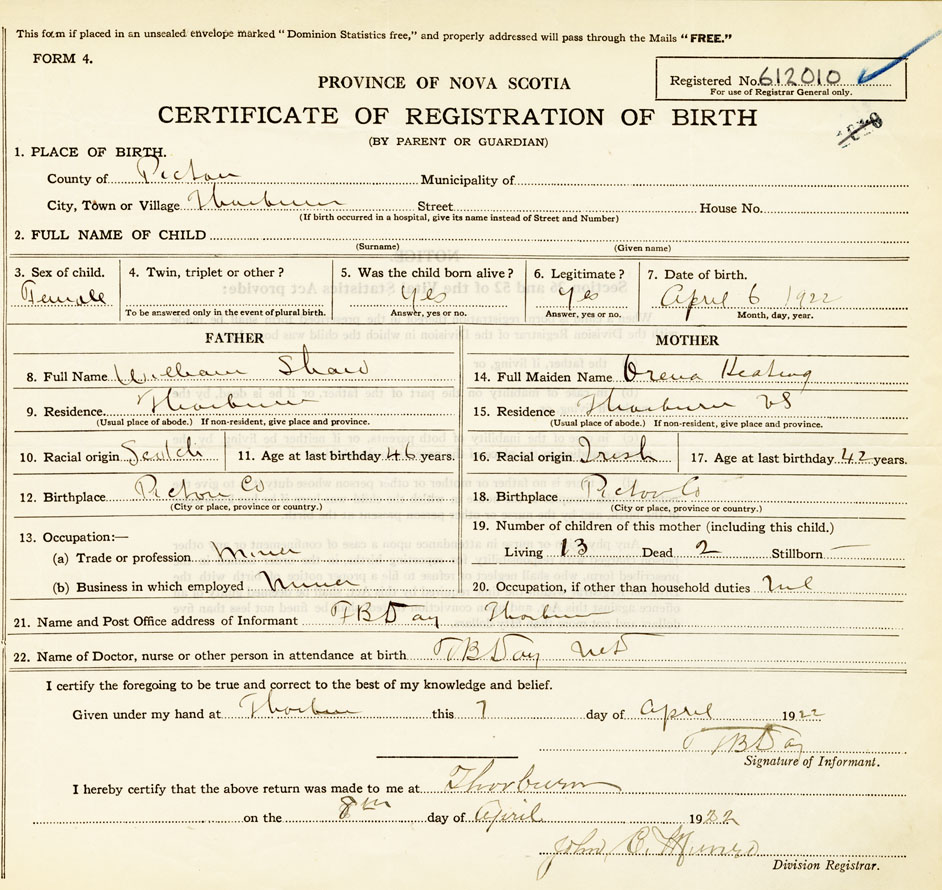 This form if placed in an unsealed envelope marked "Dominion Statistics free," and properly addressed will pass through the Mails "FREE."
FORM 4.
Registered No. 612010
For use of Registrar General only.
PROVINCE OF NOVA SCOTIA
CERTIFICATE OF REGISTRATION OF BIRTH
(BY PARENT OR GUARDIAN)
1. PLACE OF BIRTH.
County of Pictou Municipality of
City, Town or Village Thorburn Street House No.
(If birth occurred in a hospital, give its name instead of Street and Number)
2. FULL NAME OF CHILD
(Surname) (Given name)
3. Sex of child. 4. Twin, triplet or other? 5. Was the child born alive? 6. Legitimate? 7. Date of birth.
Female yes yes April 6 1922
To be answered only in the event of plural birth. Answer, yes or no. Answer, yes or no. Month, day, year.
FATHER MOTHER
8. Full Name William Shaw 14. Full Maiden Name Orena Keating
9. Residence. Thorburn 15. Residence Thorburn NS
(Usual place of abode.) If non-resident, give place and province. (Usual place of abode.) If non-resident, give place and province.
10. Racial origin Scotch 11. Age at last birthday 46 years. 16. Racial origin Irish 17. Age at last birthday 42 years.
12. Birthplace Pictou Co 18. Birthplace Pictou Co
(City or place, province or country.) (City or place, province or country.)
13. Occupation:— 19. Number of children of this mother (including this child.)
(a) Trade or profession Miner Living 13 Dead 2 Stillborn —
(b) Business in which employed Miner 20. Occupation, if other than household duties Nil
21. Name and Post Office address of Informant T B Day Thorburn
22. Name of Doctor, nurse or other person in attendance at birth T B Day M D
I certify the foregoing to be true and correct to the best of my knowledge and belief.
Given under my hand at Thorburn this 7 day of April 1922
T B Day
Signature of Informant.
I hereby certify that the above return was made to me at Thorburn
on the 8th day of April 1922
John C. Munro
Division Registrar.